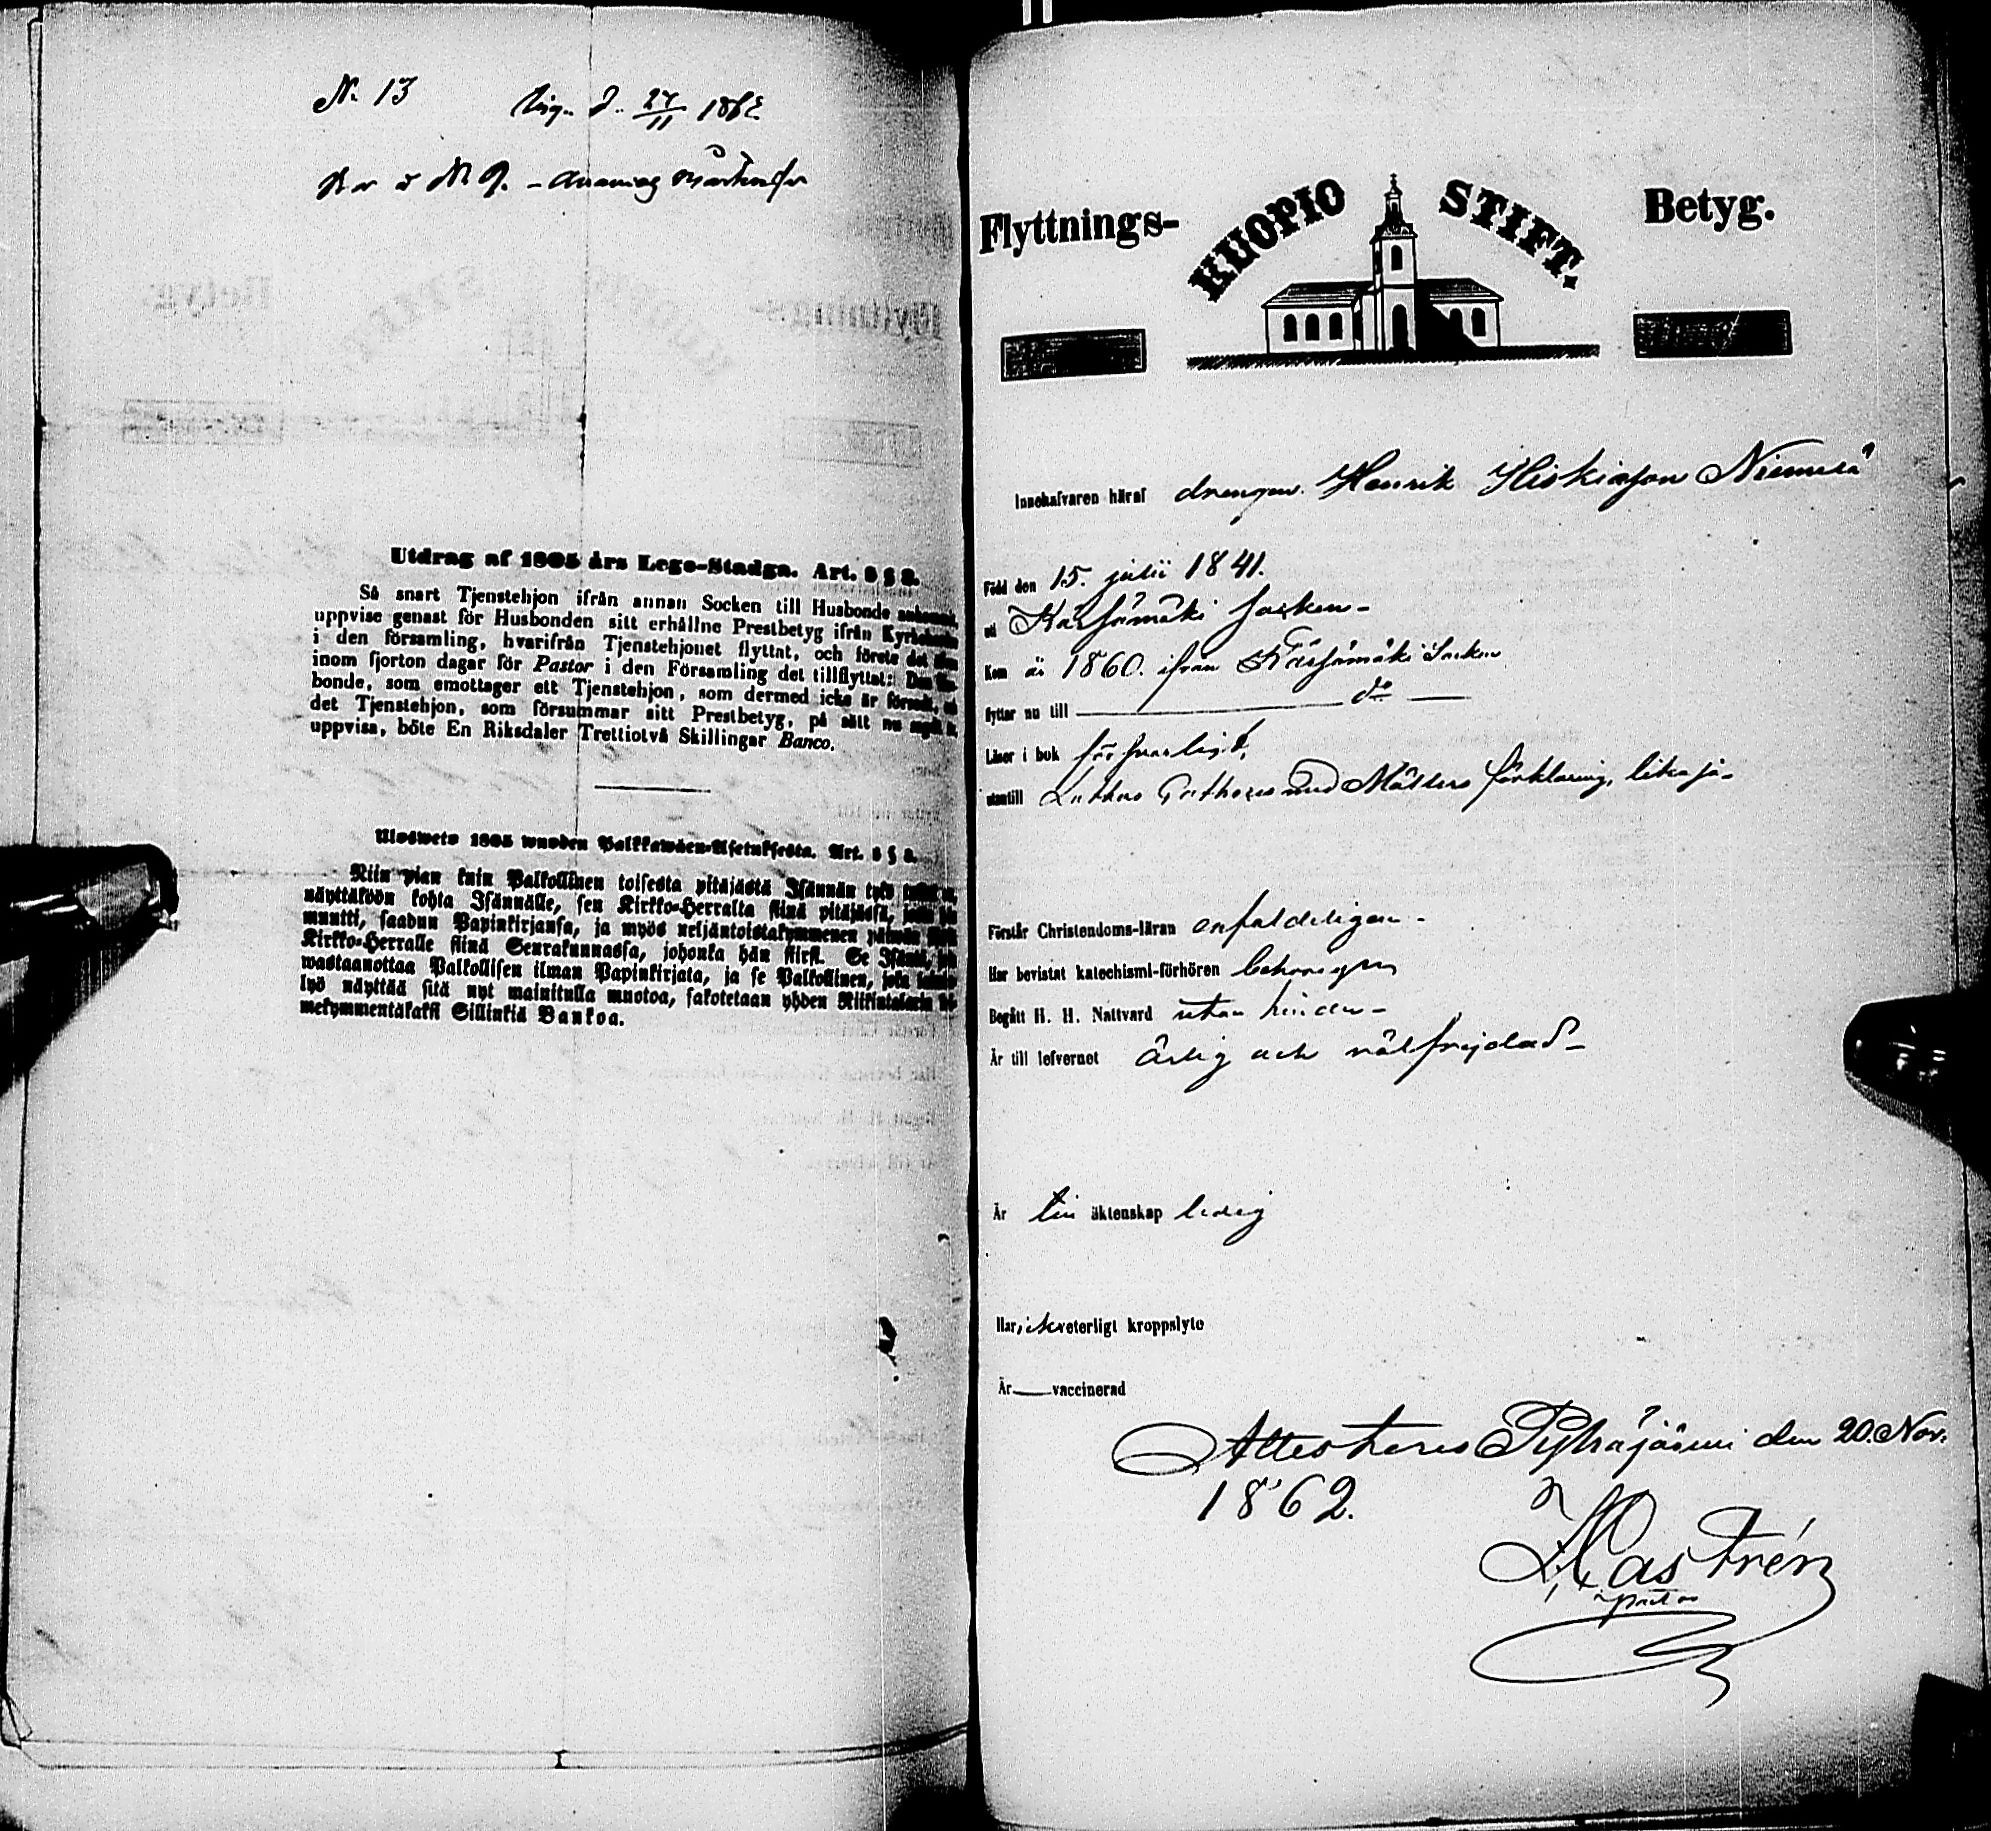 N. 13 d. 27/11 1862
N 9.
Utdrag af 1805 års Lego-Stadga. Art. 8 § 8.
Så snart Tjenstehjon ifrån annan Socken till Husbonde ankommit,
uppvise genast för Husbonden sitt erhållne Prestbetyg ifrån
i den församling, hvarifrån Tjenstehjonet flyttat, och förete det
inom fjorton dagar för Pastor i den Församling det tillflyttat: Den
bonde, som emottager ett Tjenstehjon, som dermed icke är försedt,
det Tjenstehjon, som försummar sitt Prestbetyg, på sätt nu sagdt
uppvisa, böte En Riksdaler Trettiotvå Skillingar Banco.
Ulosweto 1805 wuoden Palkkawäen-Asetuksesta. Art. 8 § 8.
Niin pian kuin Palkollinen toisesta pitäjästä Isännän tykö
näyttäköön kohta Isännälle, sen Kirkko-Herralta siinä pitäjässä,
muutti, saadun Papinkirjansa, ja myös neljäntoistakymmenen päiwän
Kirkko-Herralle siinä Seurakunnassa, johonka hän siirsi. Se Isäntä,
wastaanottaa Palkollisen ilman Papinkirjata, ja se Palkollinen, joka
lyö näyttää sitä nyt mainitulla muotoa, sakotetaan yhden Riikintalarin
mekymmentäkaksi Sillinkiä Bankoa.
Flyttnings- KUOPIO STIFT. Betyg.
Innehafvaren häraf drengen Henrik Hiskiasson Niemelä
Född den 15. julii 1841.
uti Kärsämäki socken -
Kom år 1860. ifrån Kärsämäki Socken
flyttar nu till do
Läser i bok försvarligt,
utantill Luthers med förklaring, likaså -
Förstår Christendoms-läran enfaldeligen -
Har bevistat katechismi-förhören behörigen
Begått H. H. Nattvard utan hinder -
Är till lefvernet ärlig och välfrejdad -
Är till äktenskap ledig
Har icke veterligt kroppslyte
Är — vaccinerad
Attesteras Pyhäjärvi den 20. Nov.
1862.
Castrén